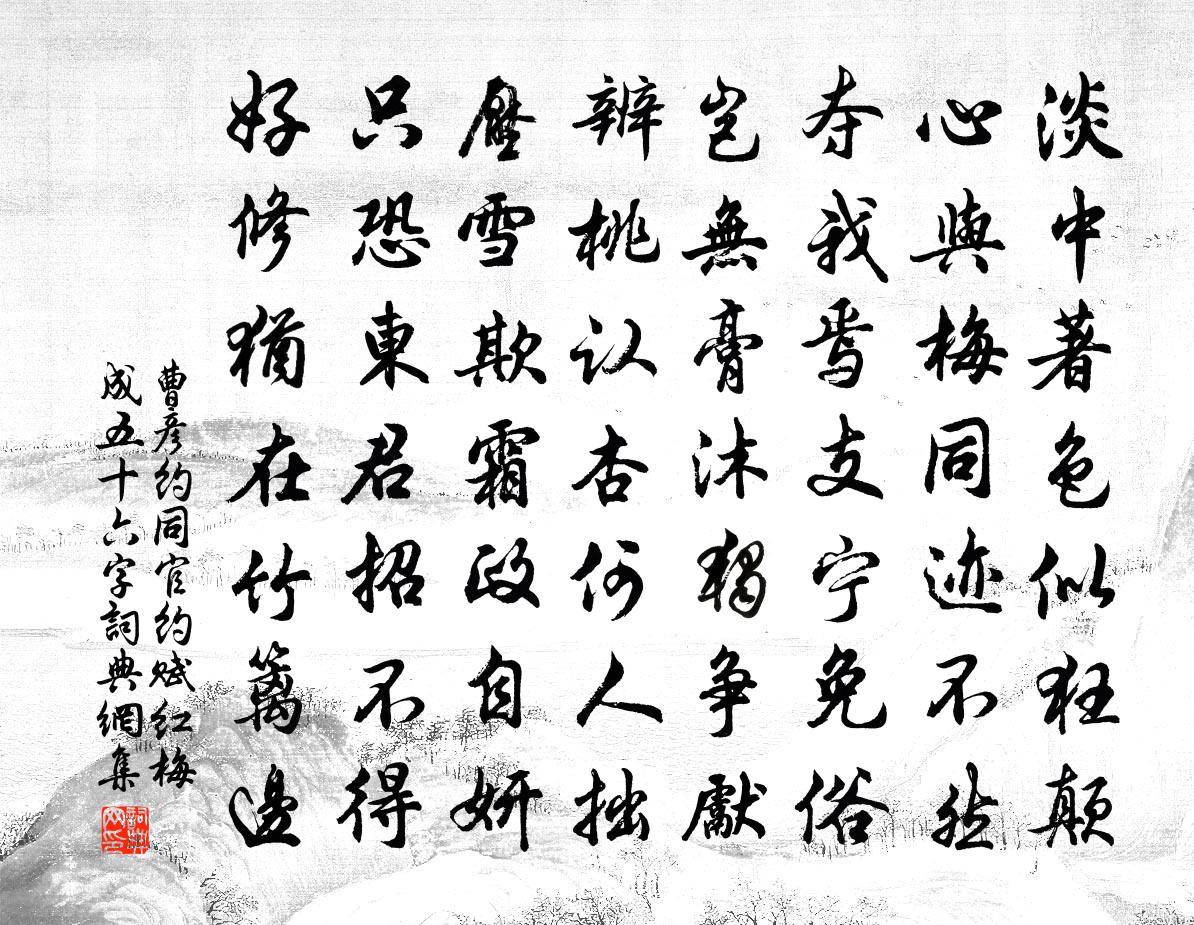 淡中著色似狂顛
心與梅同迹不然
夺我焉支宁免俗
岂無膏沐獨争獻
辨桃认杏何人拙
壓雪欺霜政自妍
只恐東君招不得
好修猶在竹篱邊
曹彦约同官约赋红梅
成五十六字詞典網集
詞典网印